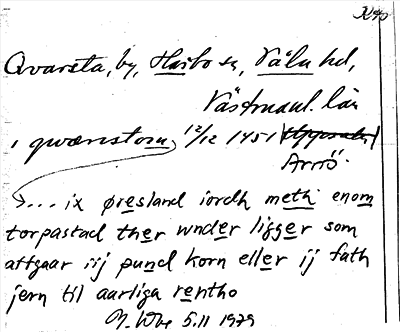 Qvarsta, by, Harbo sn, Våla hd,
Västmanl. län
i qwærnstom 12/12 1451 (Uppsala)
Arnö.
... ix øresland iordh meth enom
torpastad ther wnder ligger som
atfgaar iij pund korn eller ij fath
jern til aarliga rentho
5.11 1979